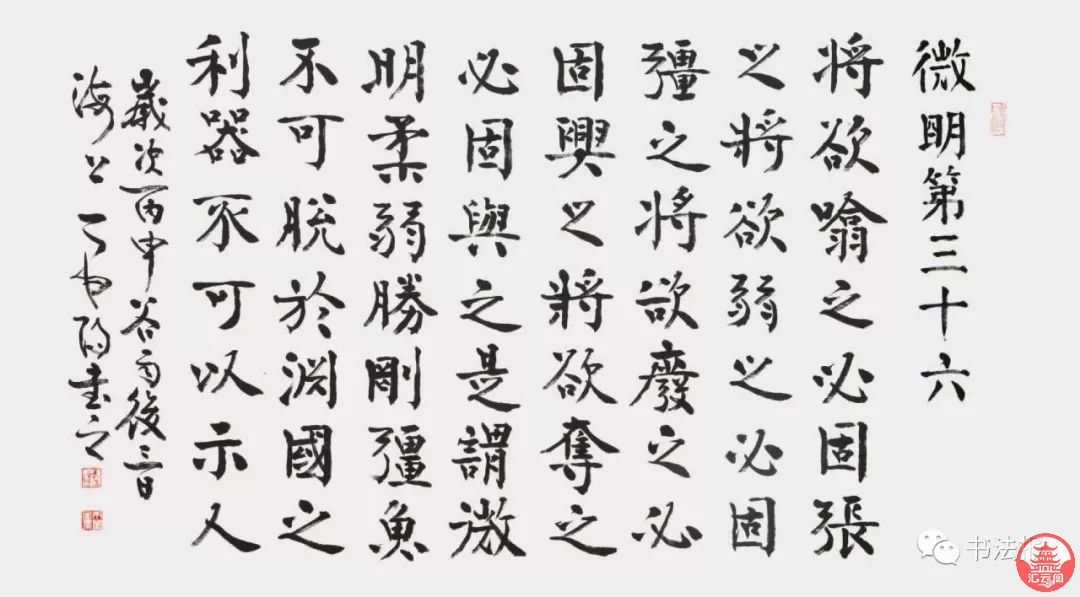 微明第三十六
將欲噏之必固張
之將欲弱之必固
彊之將欲廢之必
固興之將欲奪之
必固與之是謂微
明柔弱勝剛彊魚
不可脫於淵國之
利器不可以示人
嵗次丙申谷雨後三日
海上丁申陽書之
书法
汇云阁